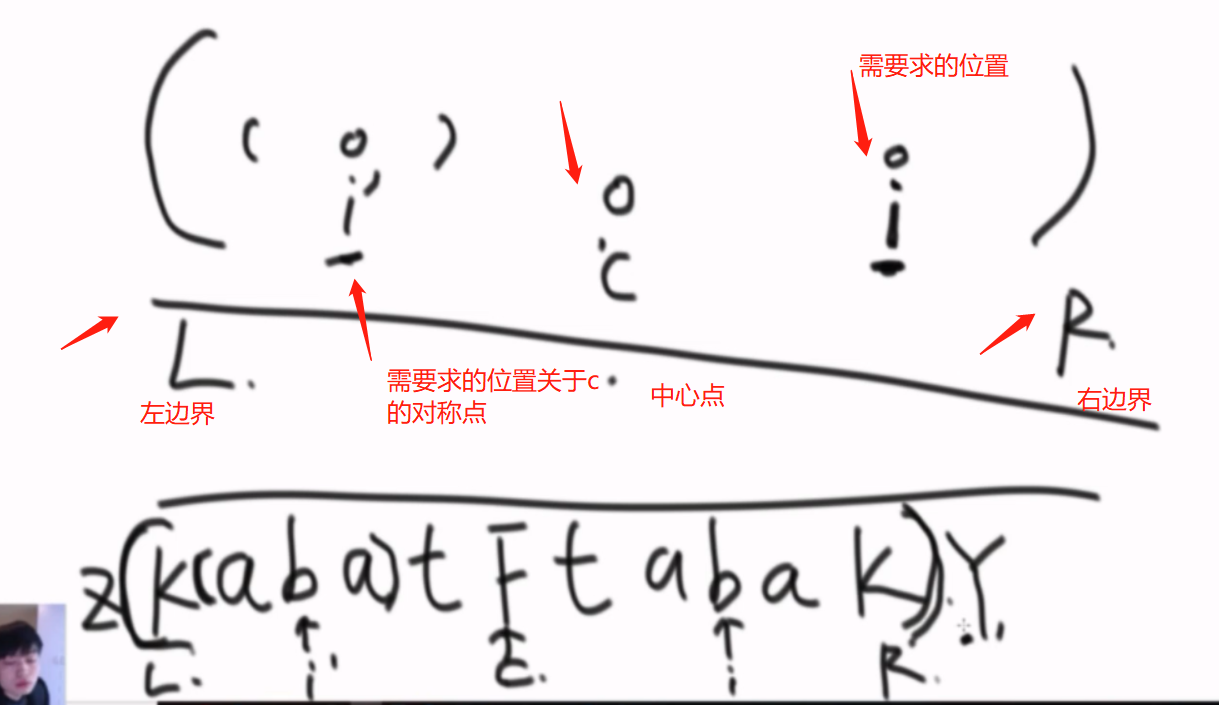 需要求的位置
( ( o ) o o )
i' c i
L. R.
需要求的位置关于c
的对称点
中心点
左边界
右边界
z(k(aba)tFtabak)Y
L. i' c. i R.